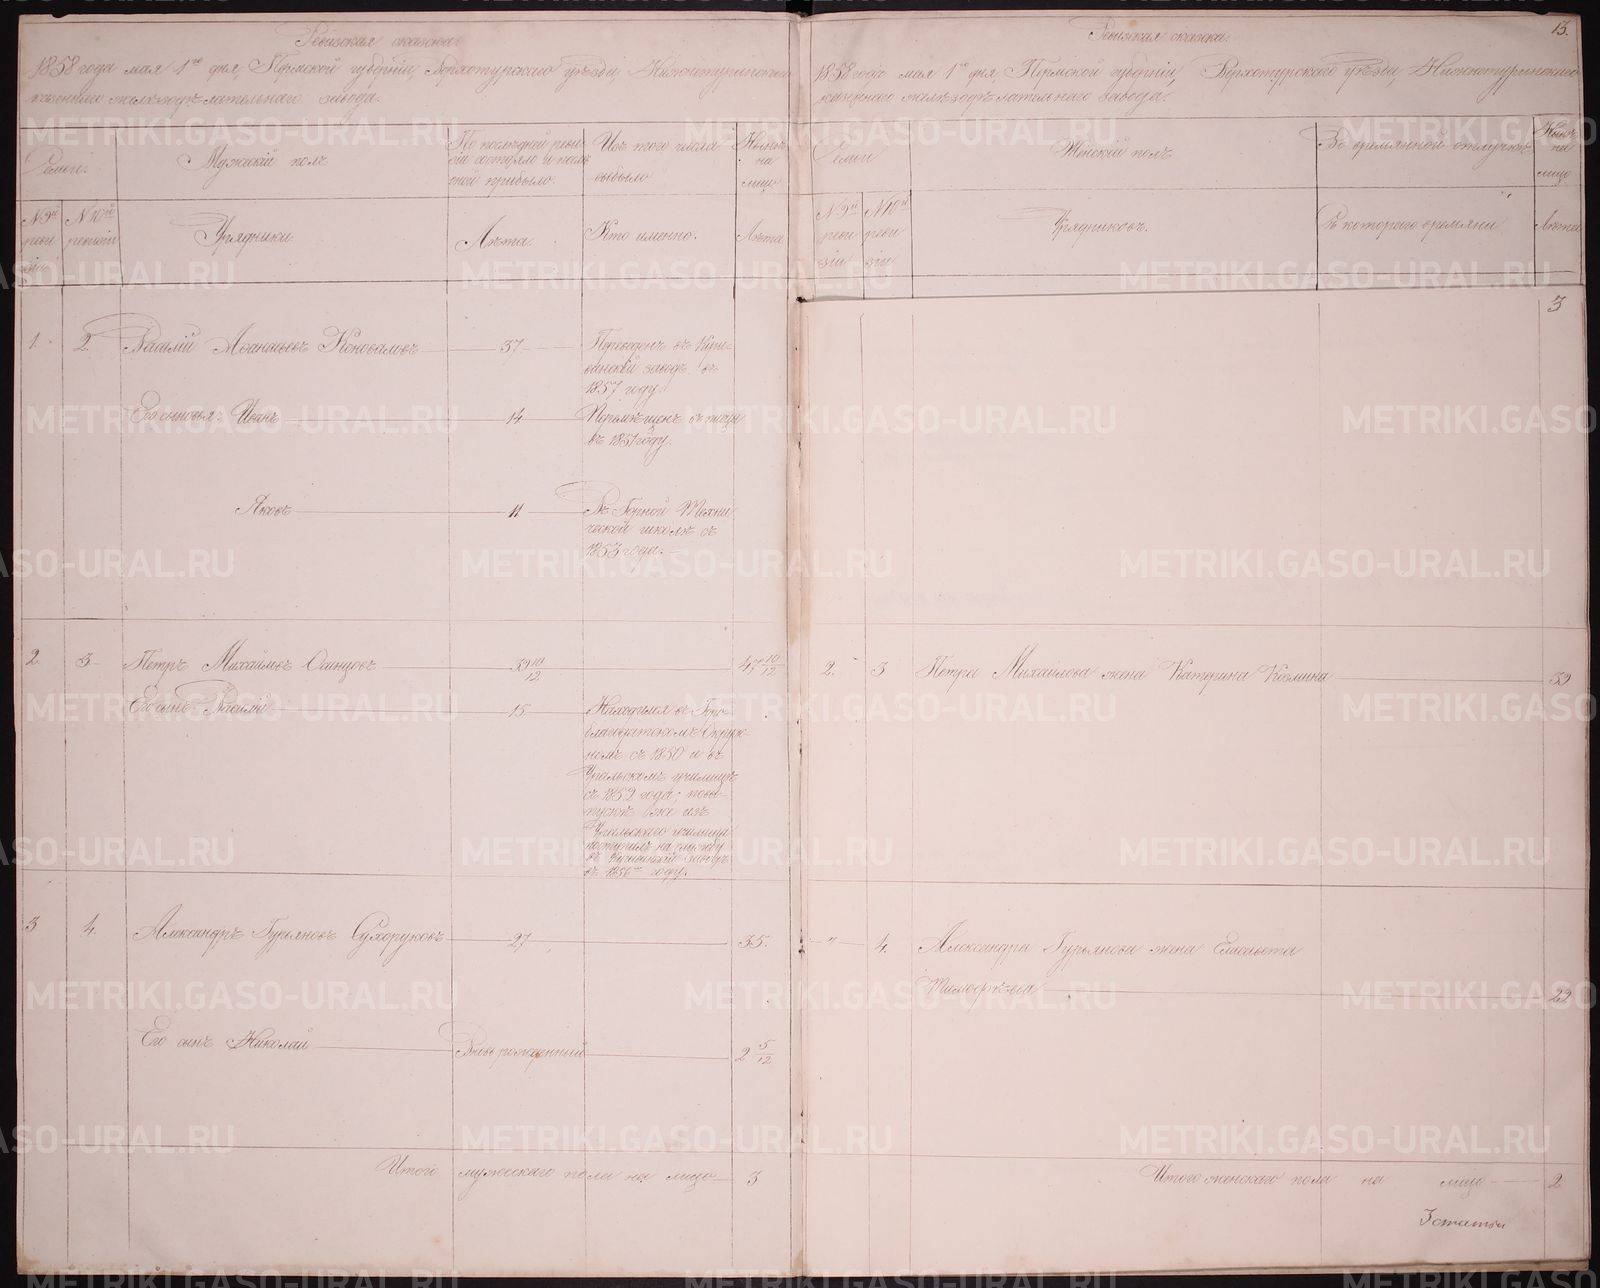 Ревизская сказка:
1858 года мая 1го дня, Пермской губернии, Верхотурского уезда, Нижнетуринского
казеннаго железоделательнаго завода.
Семьи.
Мужеский полъ
По последней реви-
зіи состояло и после
оной прибыло.
Изъ того числа
выбыло
Ныне
на
лицо
№ 9й
реви
зіи
№ 10ой
ревизіи
Урядники.
Лета.
Кто именно.
Лета
1.
2
Василій Афанасьевъ Коноваловъ
37
Переведенъ въ Куш-
винскій заводъ въ
1857 году.
Его сыновья: Иванъ
14
въ 1857 году.
Яковъ
11
Въ Горной Техни
ческой школе съ
1853 года.
2.
3
Петръ Михайловъ Осинцовъ
39 10/12
47 10/12
Его сынъ Василій
15
Находился въ Горо-
благодатскомъ Окруж-
номъ съ 1850 и въ
Уральскомъ училище
съ 1852 года; по вы-
пуске же изъ
Уральскаго училища
поступилъ на службу
въ Кушвинскій заводъ
въ 1856 году.
3
4.
Александръ Гурьяновъ Сухоруковъ
27
35.
Его сынъ Николай
Вновь рожденный
2 5/12
Итого мужескаго пола на лицо
3
13.
Ревизская сказка:
1858 года мая 1го дня Пермской губернии, Верхотурского уезда, Нижнетуринского
казеннаго железоделательнаго завода.
Семьи
Женскій полъ
Во временной отлучке
Ныне
на
лицо
№ 9й
реви
зіи
№ 10й
реви
зіи
Урядниковъ.
Съ котораго времяни.
Лета
3
2.
3
Петра Михайлова жена Катерина Козмина
39
4.
Александра Гурьянова жена Елисавета
Тимофеева
22
Итого женскаго пола на лицо
2
METRIKI.GASO-URAL.RU